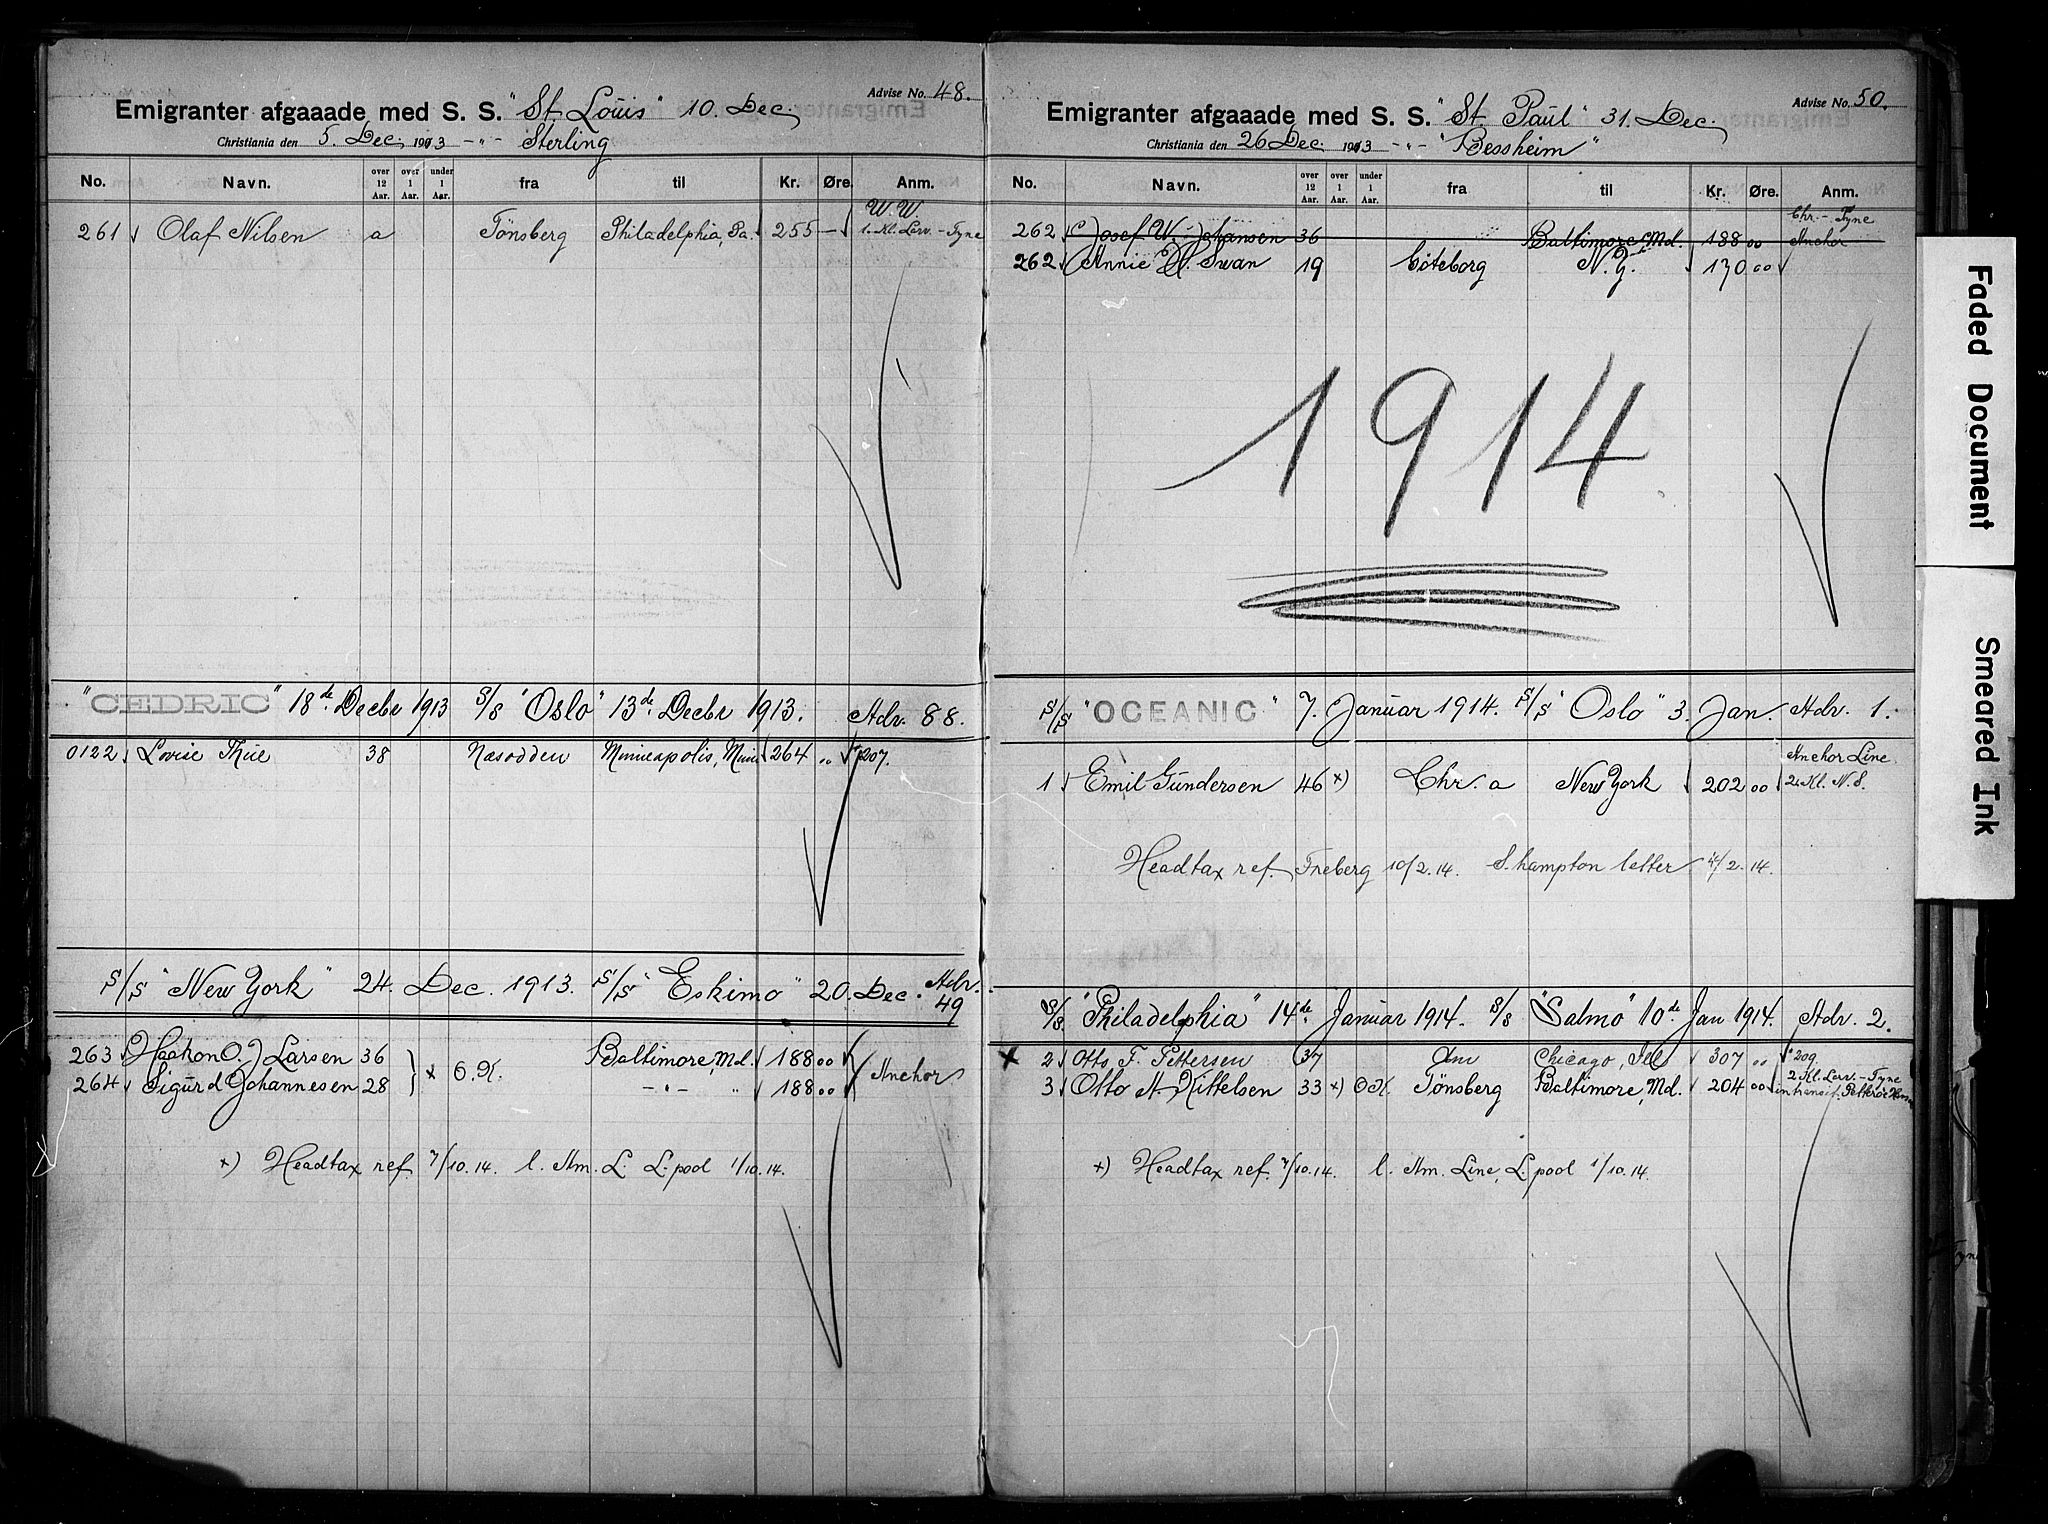 Advise No. 48.
Emigranter afgaaade med S. S. "St. Louis" 10. Dec.
Christiania den 5. Dec. 1913 -"- Sterling
No. Navn. over 12 Aar. over 1 Aar. under 1 Aar. fra til Kr. Øre. Anm.
W. W.
261 Olaf Nilsen a Tönsberg Philadelphia, Pa. 255 — 1. Kl. Larv. - Tyne
"CEDRIC" 18de Decbr 1913 S/S "Oslo" 13de Decbr 1913. Adv. 88.
0122 Lovise Thue 38 Næsodden Minneapolis, Minn 264 " 207.
S/S "New York" 24. Dec. 1913. S/S "Eskimo" 20. Dec. Adv. 49
263 Haakon O. J Larsen 36 x O.K. Baltimore, Md. 188 00 Anchor
264 Sigurd Johannesen 28 -"- " 188 00
x) Headtax ref. 7/10.14. l. Am. L. L.pool 1/10.14.
Advise No. 50.
Emigranter afgaaade med S. S. "St. Paul" 31. Dec.
Christiania den 26 Dec. 1913 -"- "Bessheim"
No. Navn. over 12 Aar. over 1 Aar. under 1 Aar. fra til Kr. Øre. Anm.
Chr. - Tyne
262 Josef W. Johansen 36 Baltimore Md. 188 00 Anchor
262 Annie H. Swan 19 Göteborg N.Y. 170 00
1914
S/S "OCEANIC" 7. Januar 1914. S/S "Oslo" 3. Jan. Adv. 1.
Anchor Line.
1 Emil Gundersen 46 x) Chr.a New York 202 00 2. Kl. N.S.
Headtax ref. Freberg 10/2.14. S.hampton letter 4/2.14.
S/S "Philadelphia" 14de Januar 1914. S/S "Salmo" 10de Jan 1914. Adv. 2.
x 2 Otto F. Pettersen 37 Chicago, Ills 307 " 209
2 Kl. Larv. - Tyne
3 Otto A. Kittelsen 33 x) OK. Tönsberg Baltimore, Md. 204 00 intransit.
x) Headtax ref. 7/10.14. l. Am. Line, L.pool 1/10.14.
Faded Document
Smeared Ink